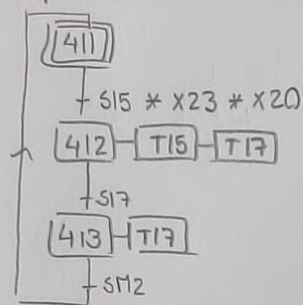 411
S15 * X23 * X20
412 T15 T17
S17
413 T17
SM2